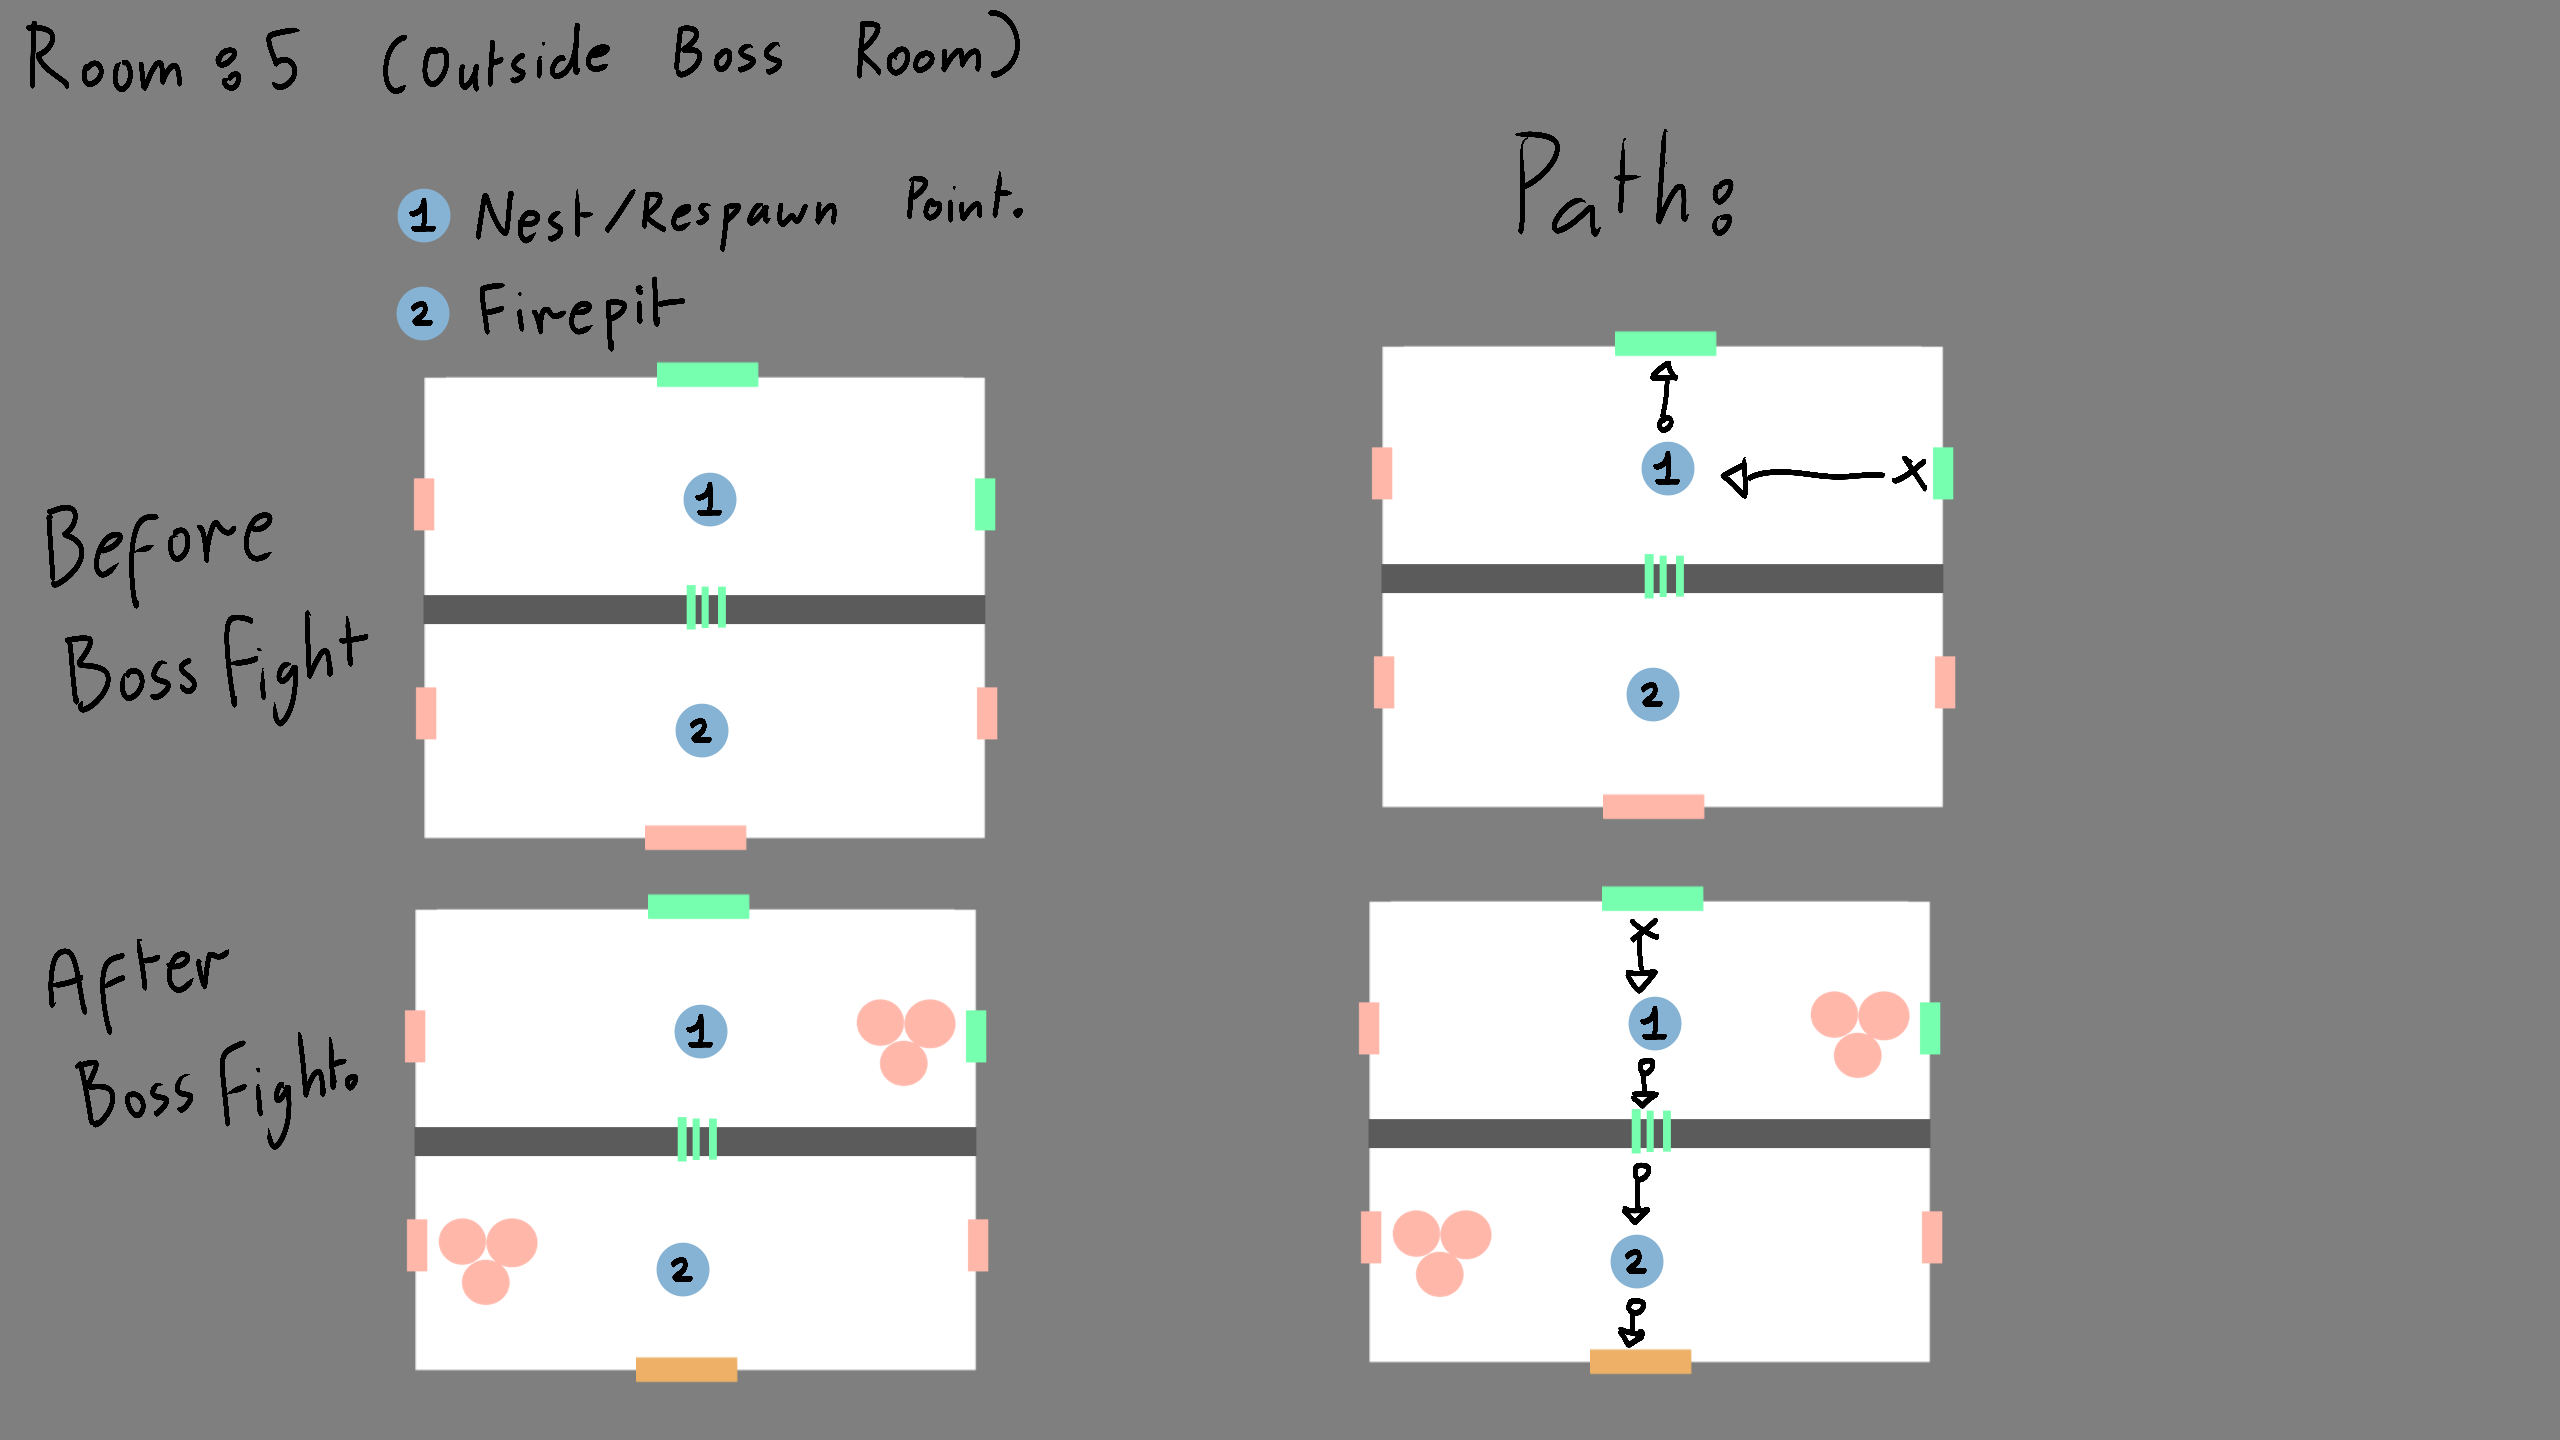 Room: 5 (Outside Boss Room)
1 Nest/Respawn Point.
2 Firepit
Path:
Before
Boss Fight
1
2
1
X
2
After
Boss Fight.
1
2
X
1
2